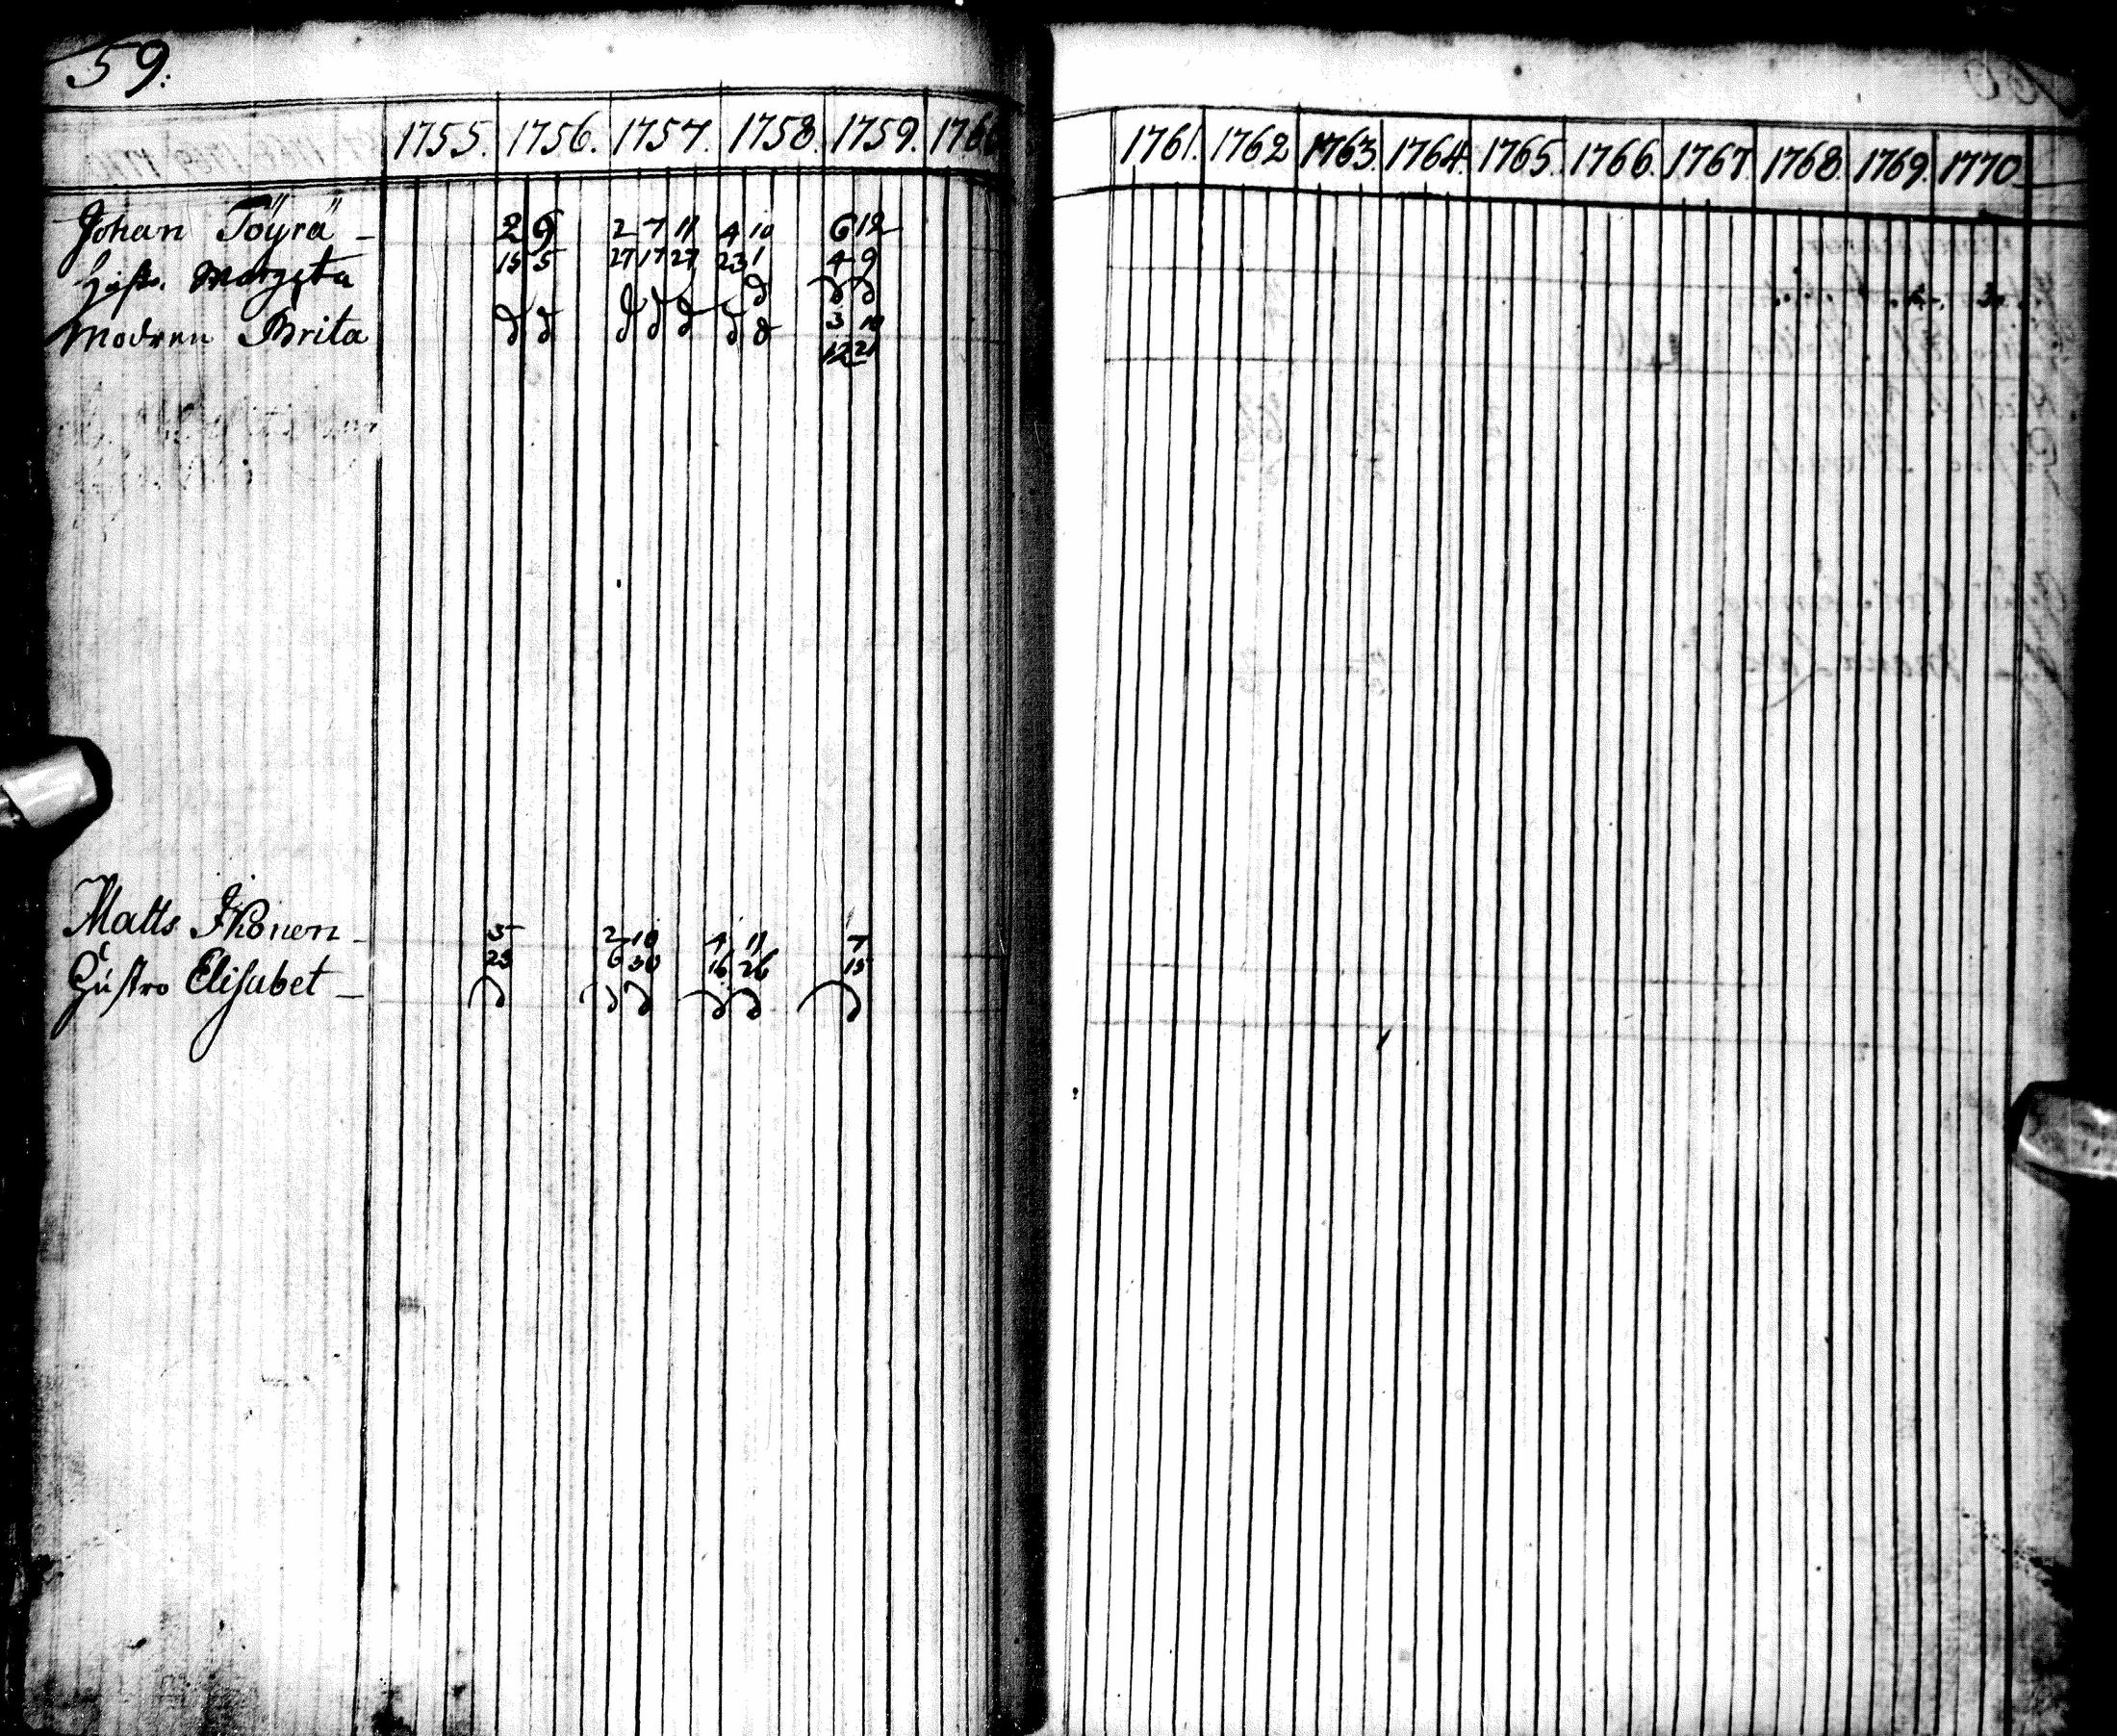 59.
1755. 1756. 1757. 1758. 1759. 1760 1761. 1762 1763. 1764. 1765. 1766. 1767. 1768. 1769. 1770.
Johan Töÿrä - 2 9 2 7 11 4 10 6 12
15 5 27 17 27 23 1 4 9
Hust. Margeta
Modren Brita 3 10
12 21
Matts Ikonen - 5 2 10 4 11 7
23 6 30 16 26 15
Hustro Elisabet -